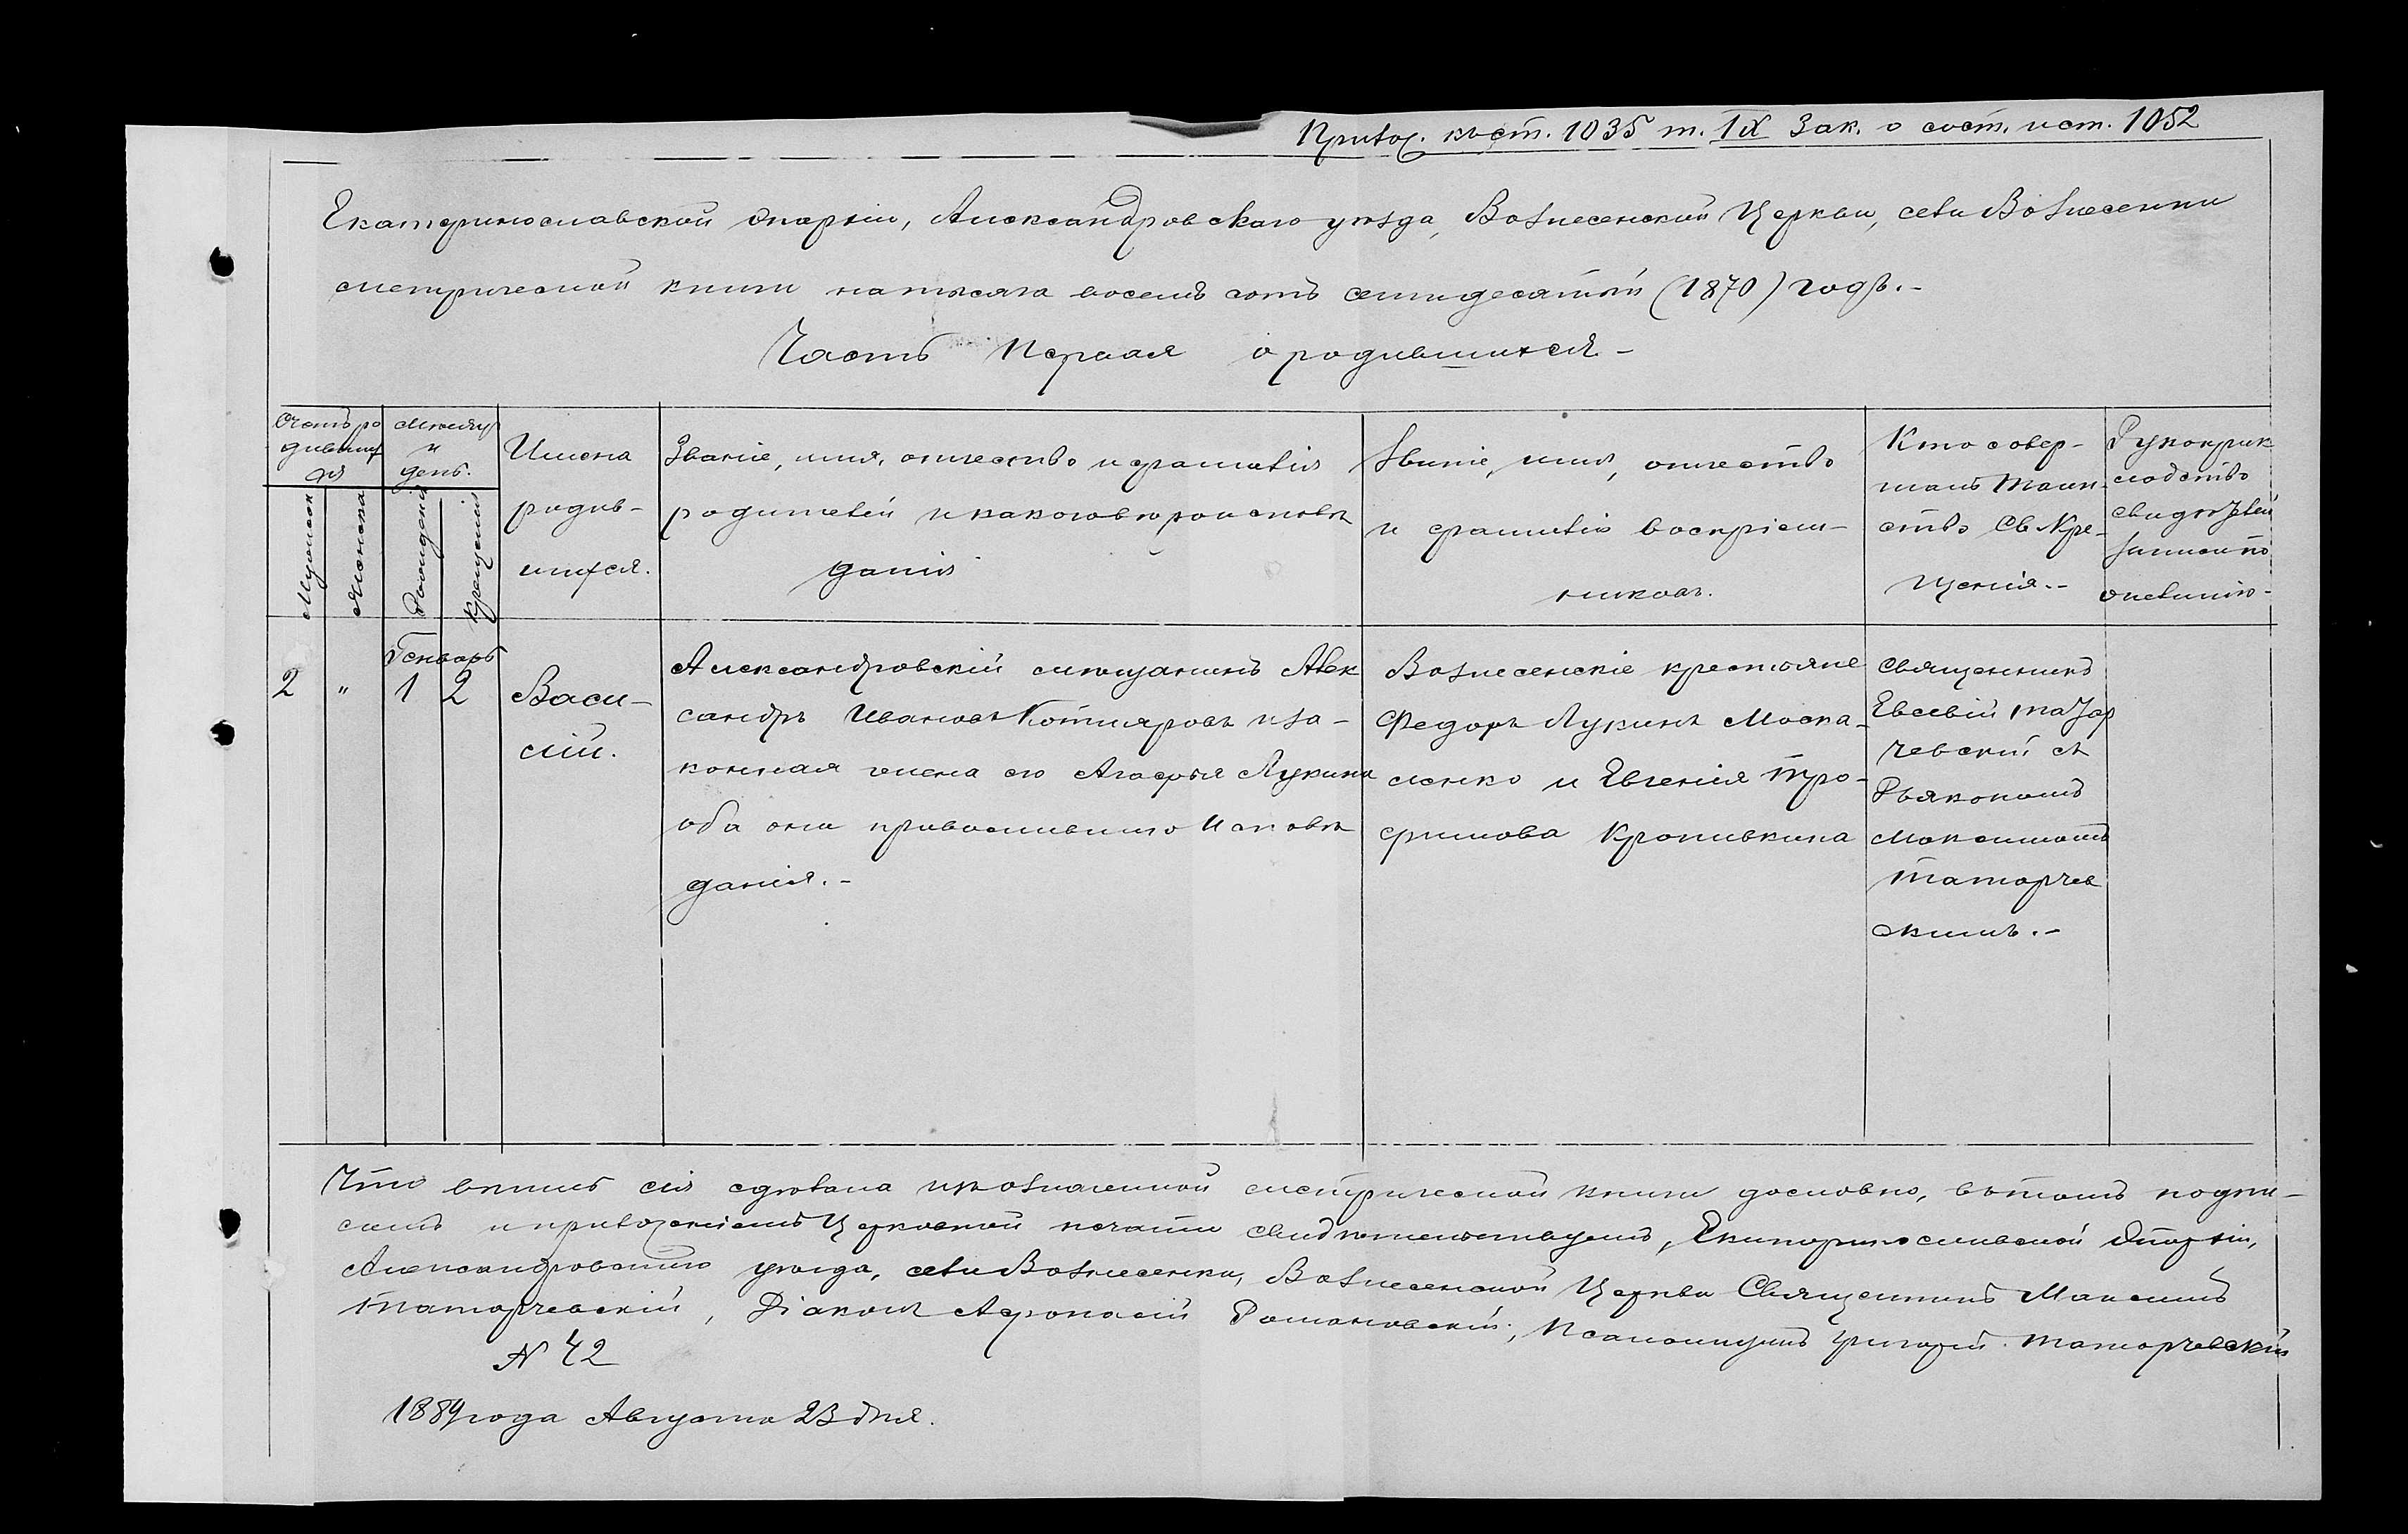 Прилож. къ ст. 1035 т. IX Зак. о сост. и ст. 1052
Екатеринославской Епархіи, Александровскаго уѣзда, Вознесенской Церкви, села Вознесенки
метрической книги на тысяча восемь сотъ семидесятый (1870) годъ.-
Часть Первая о родившихся-
Счетъ ро
дивших
ся
Мѣсяцъ
и
день.
Мужеска
Женска
Рожденія
Крещенія
Имена
родив-
шихся.
Званіе, имя, отчество и фамилія
родителей и какого вѣроисповѣ
данія
Званіе, имя, отчество
и фамилія воспріем-
никовъ.
Кто совер-
шалъ таин-
ство Св. Кре-
щенія.-
Рукоприк
ладство
свидѣтелей
записи по
желанію-
Генварь
2 " 1 2
Васи-
лій.
Александровскій мѣщанинъ Алек
сандръ Ивановъ Котляровъ и за-
конная жена его Агафья Лукина
оба они православнаго Исповѣ
данія.-
Вознесенскіе крестьяне
Федоръ Лукинъ Моска-
ленко и Евгенія Тро-
фимова Кропивкина
Священникъ
Евсевій Татар
чевскій съ
Дьякономъ
Максимомъ
Татарчев
скимъ.-
Что выпись сія сдѣлана изъ означенной метрической книги дословно, въ томъ подпи-
сомъ и приложеніемъ Церковной печати свидѣтельствуемъ, Екатеринославской Епархіи,
Александровскаго уѣзда, села Вознесенки, Вознесенской Церкви Священникъ Максимъ
Татарчевскій, Діаконъ Афонасій Романовскій, Псаломщикъ Григорій Татарчевскій
N 42
1889 года Августа 23 дня.